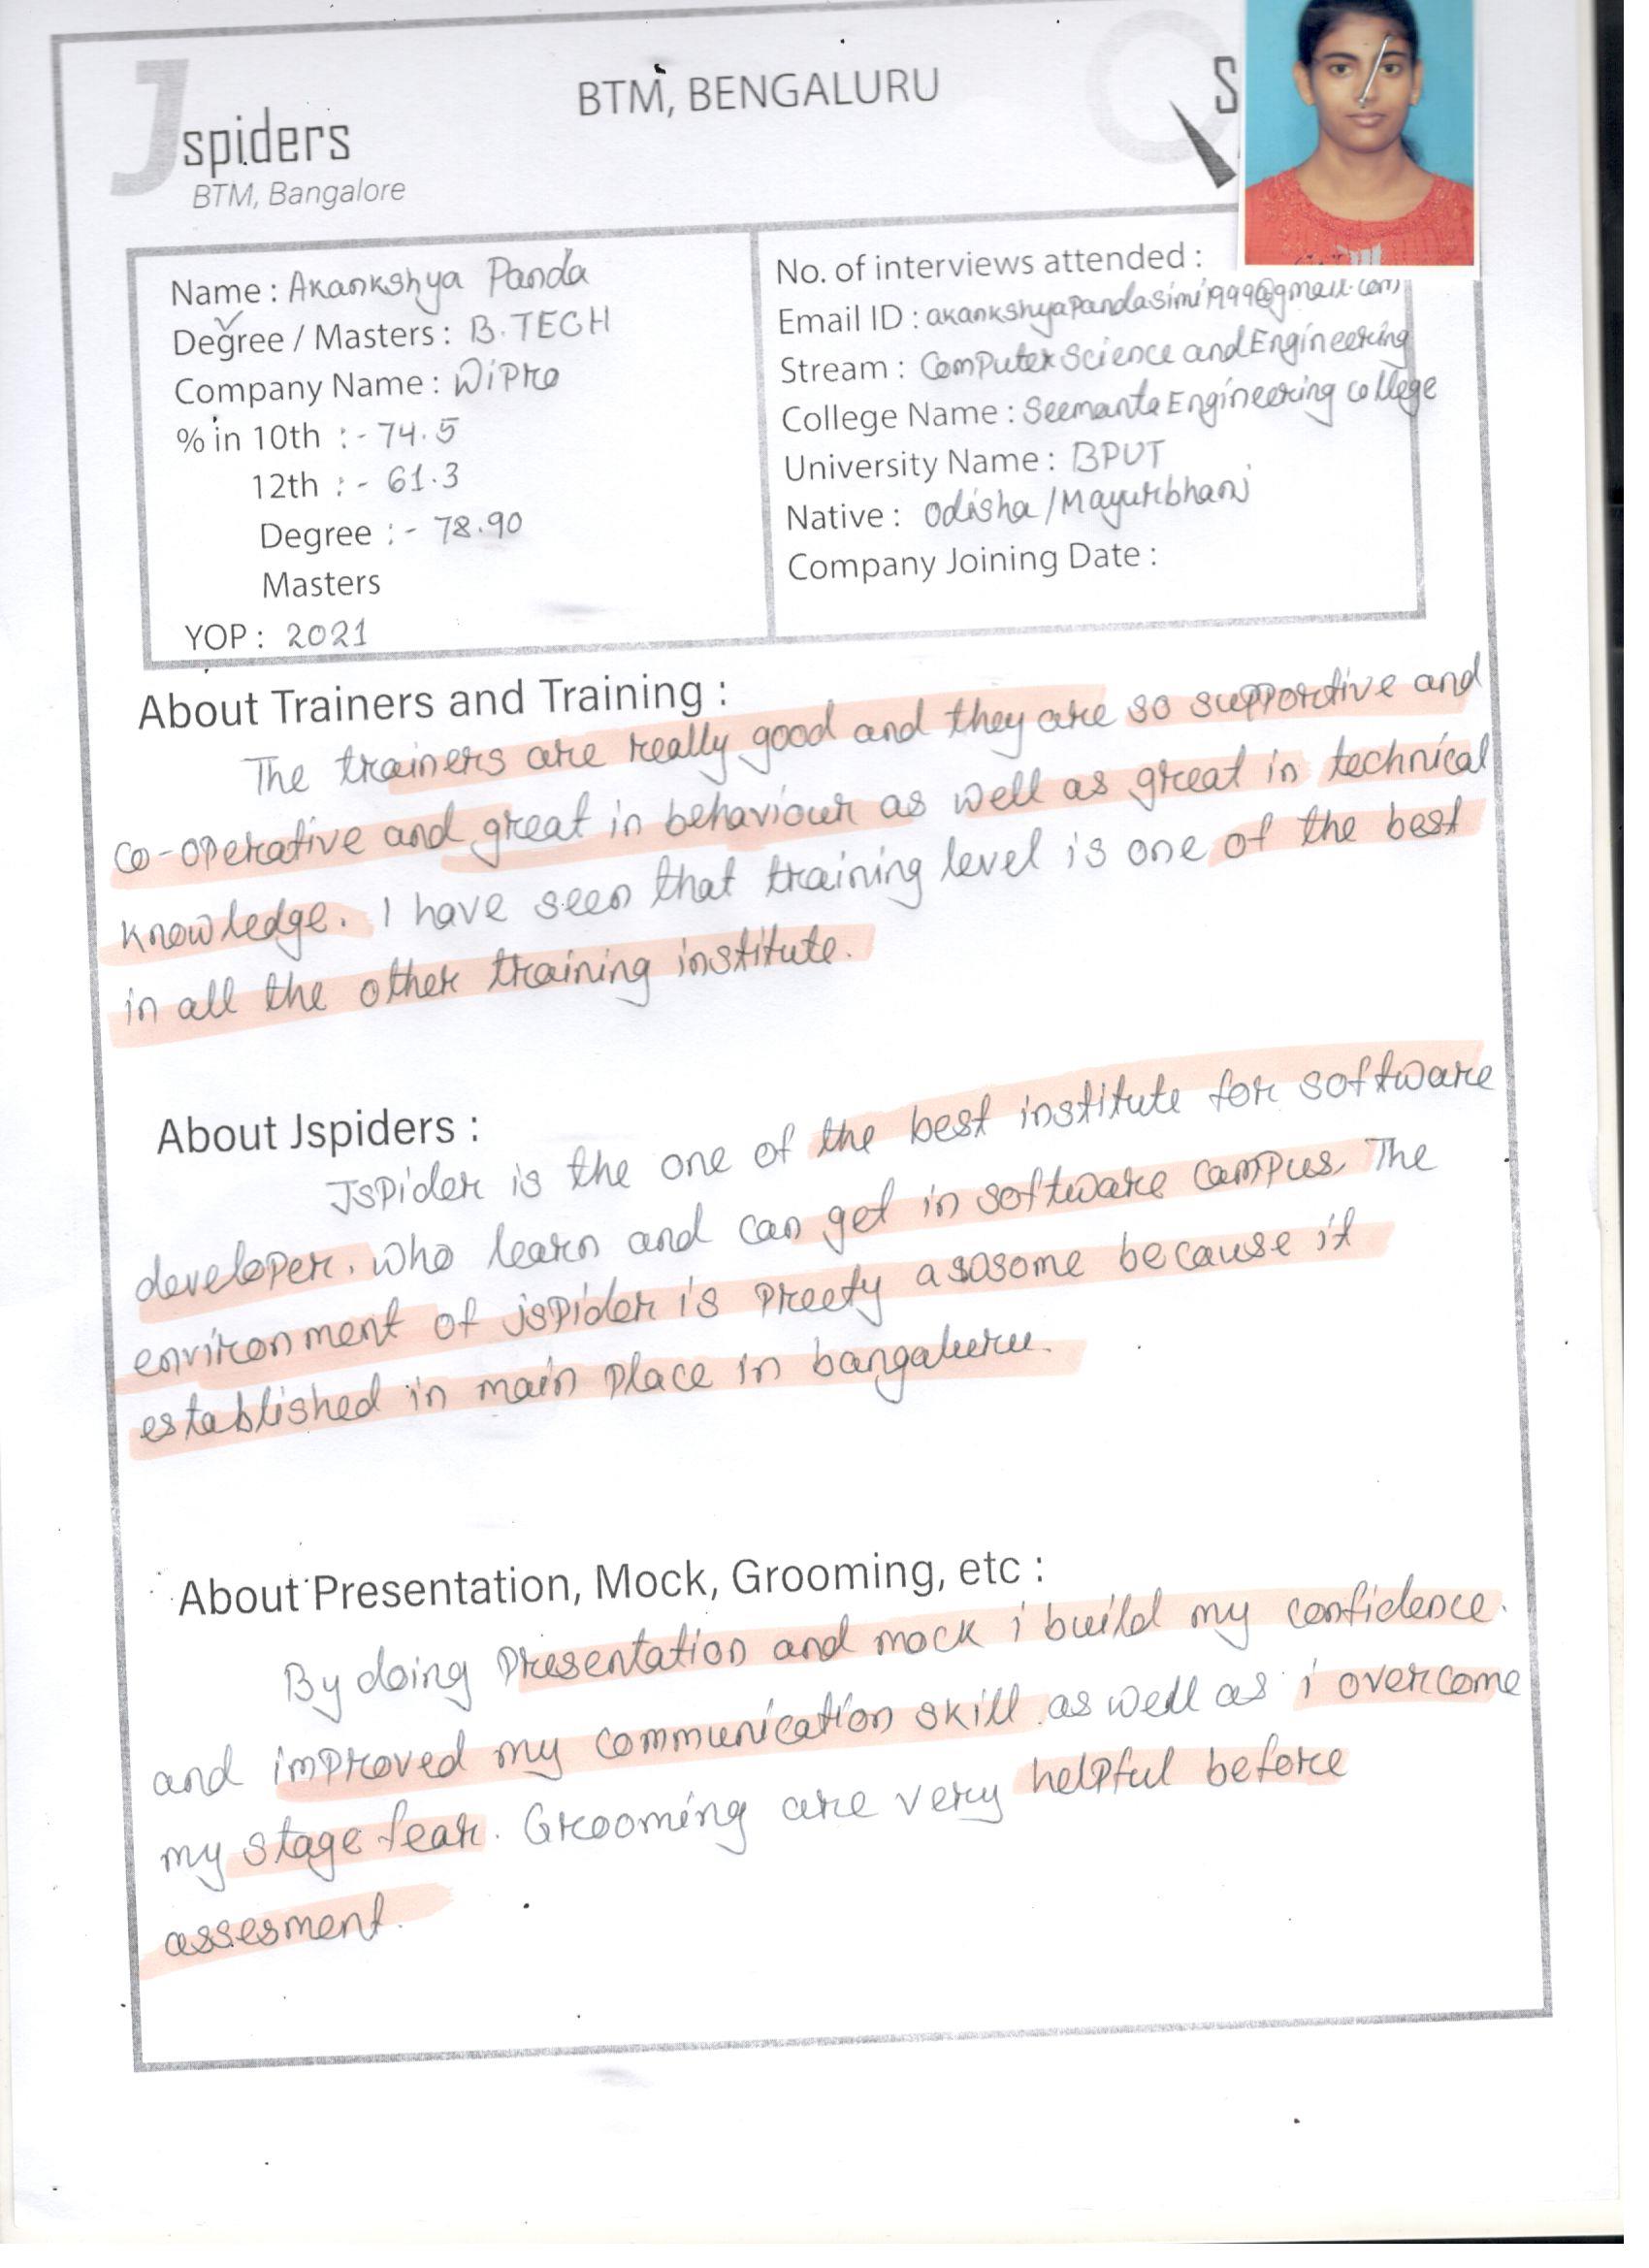 Jspiders
BTM, Bangalore
BTM, BENGALURU
Q S
Name : Akankshya Panda
Degree / Masters : B.TECH
Company Name : Wipro
% in 10th :- 74.5
12th :- 61.3
Degree :- 78.90
Masters
YOP : 2021
No. of interviews attended :
Email ID : akankshyapandasimi1999@gmail.com
Stream : Computer Science and Engineering
College Name : Seemanta Engineering college
University Name : BPUT
Native : Odisha / Mayurbhanj
Company Joining Date :
About Trainers and Training :
The trainers are really good and they are so supportive and
co-operative and great in behaviour as well as great in technical
knowledge. I have seen that training level is one of the best
in all the other training institute.
About Jspiders :
Jspider is the one of the best institute for software
developer. who learn and can get in software campus. The
environment of jspider is preety asosome because it
established in main place in bangaluru.
About Presentation, Mock, Grooming, etc :
By doing presentation and mock i build my confidence.
and improved my communication skill as well as i overcome
my stage fear. Grooming are very helpful before
assesment.